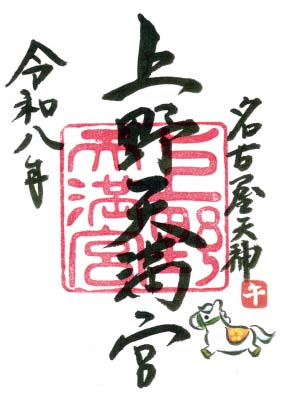 名古屋天神
午
上野天満宮
上野天満宮
令和八年